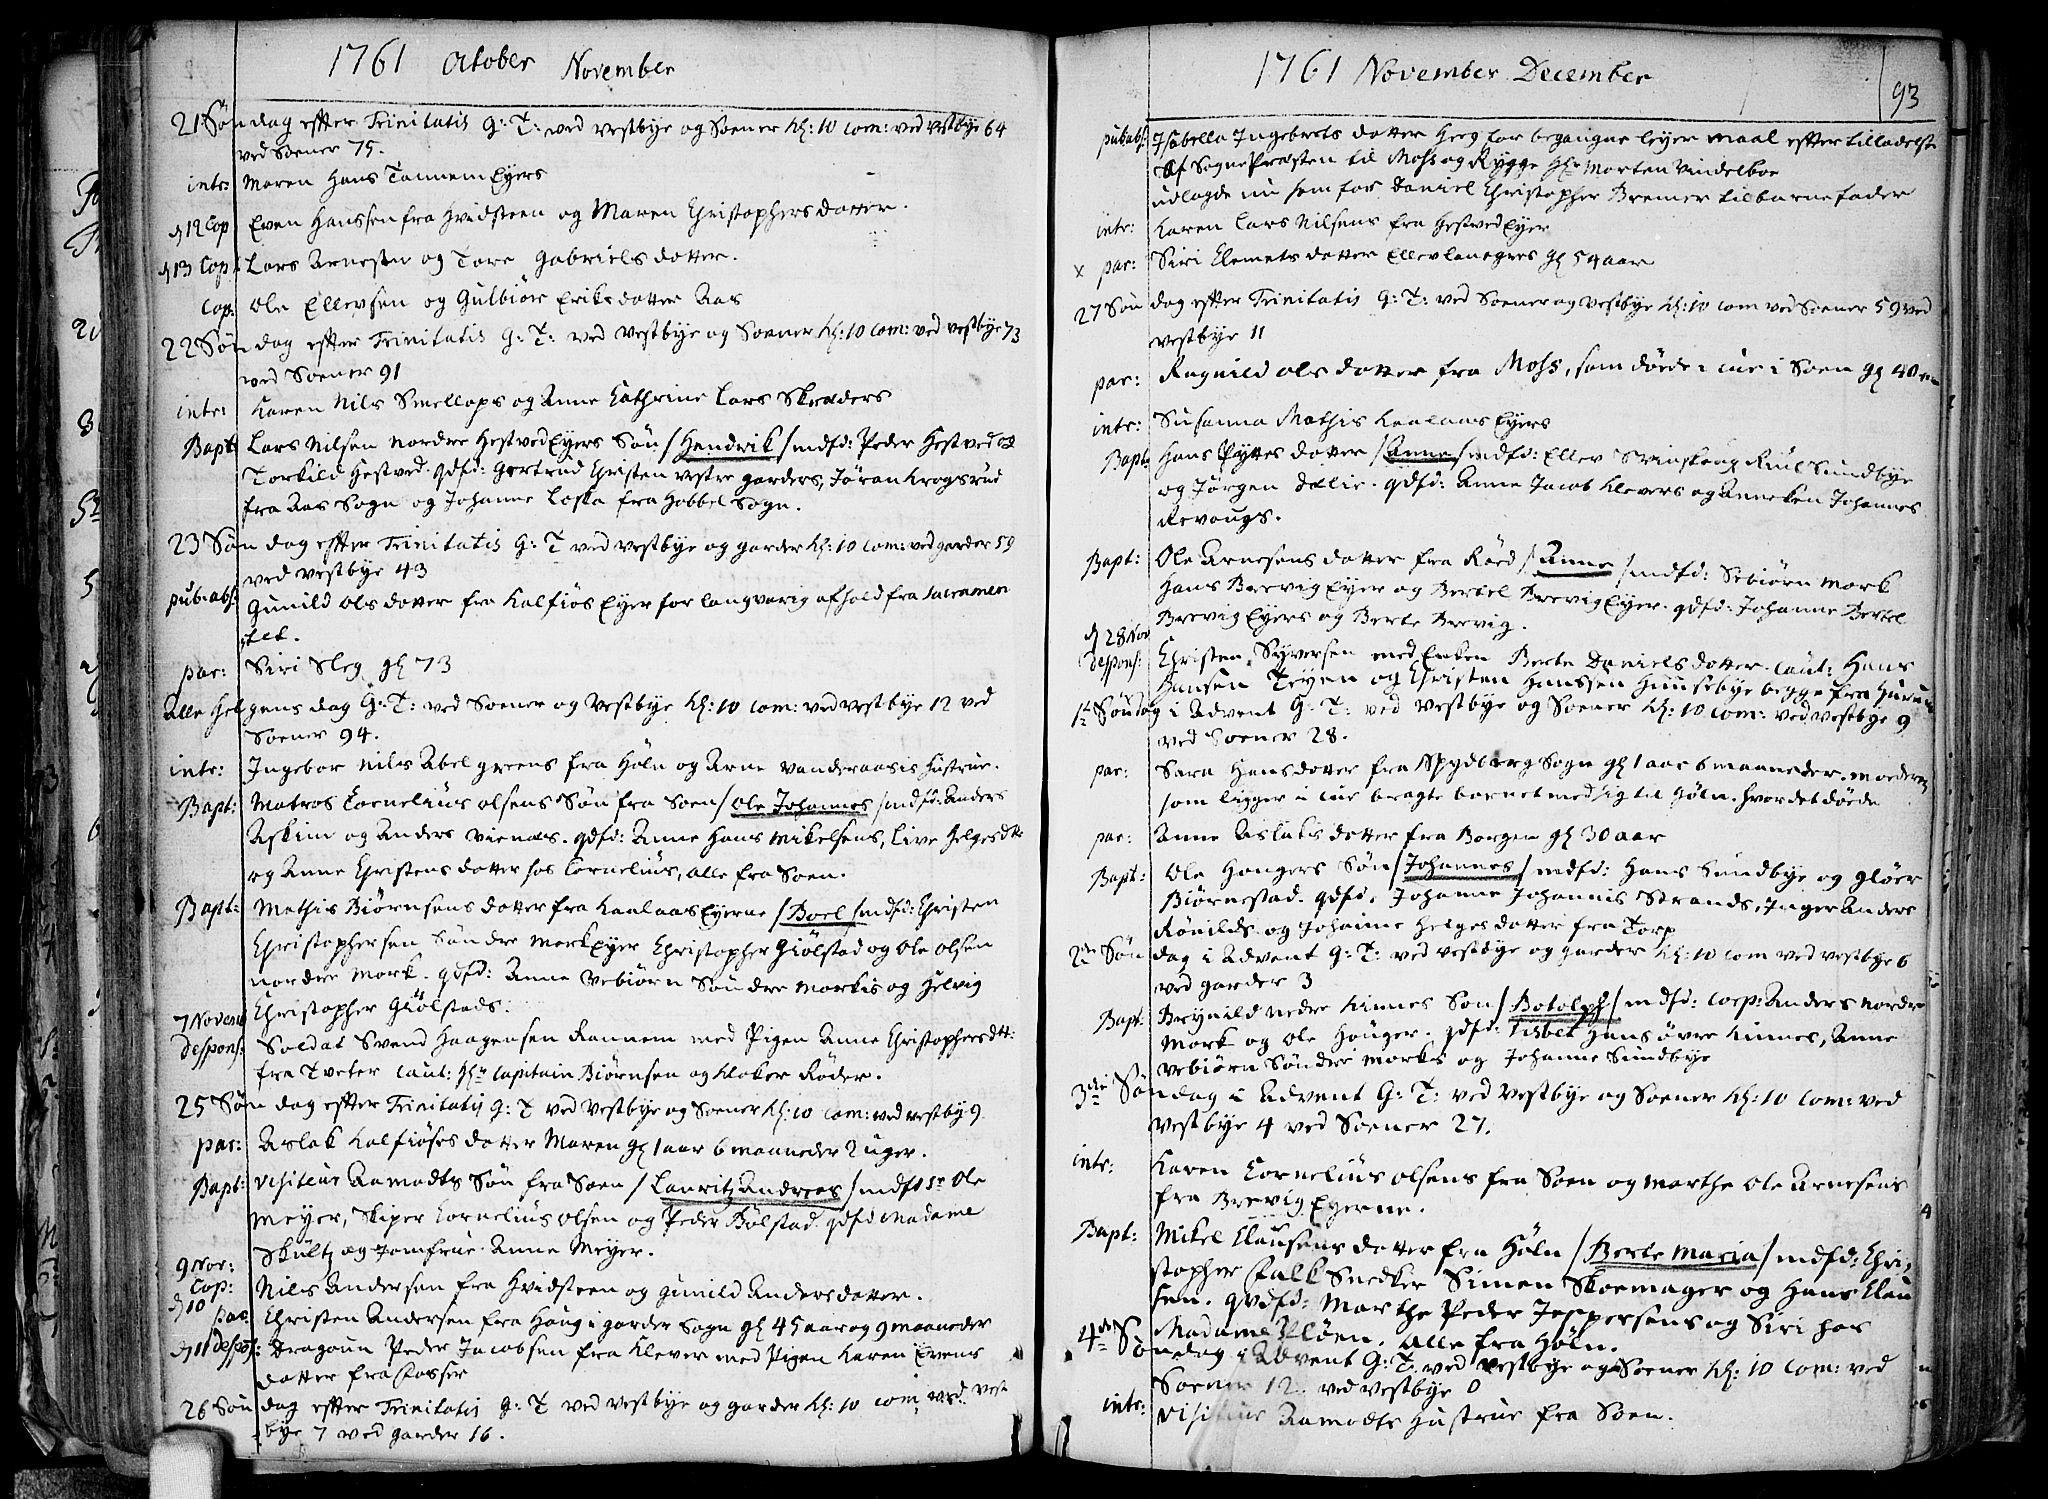 1761 October November
21 Søndag effter Trinitatis G: T: ved Vestbye og Soener Kl: 10 Com: ved Vestbye 64
ved Soener 75.
intr: Maren Hans Tannem Eyers
d 12 Cop Even Hanssen fra Hvidsteen og Maren Christophersdatter.
d 13 Cop: Lars Arnesen og Tore Gabrielsdatter.
Cop: Ole Ellevsen og Gulbiør Eriksdatter Aas
22 Søndag effter Trinitatis G: T: ved Vestbye og Soener Kl: 10 Com: ved Vestbye 73
ved Soener 91
intr: Karen Nils Smellops og Anne Cathrine Lars Skræders
Bapt: Lars Nilsen Nordre Hestved Eyers Søn / Hendrik / mdfd: Peder Hestved og
Torkild Hestved. qdfd: Gertrud Christen Vestre Garders, Jøran Krogsrud
fra Aas Sogn og Johanne Loska fra Hobbel Sogn.
23 Søndag effter Trinitatis G: T ved Vestbye og Garder Kl: 10 Com: ved Garder 59
ved Vestbye 43
pub: abs: Gunild Olsdatter fra Kalfiøs Eyer for langvarig afhold fra Sacramen
tet.
par: Siri Sleg gl 73
Alle Helgens dag G: T: ved Soener og Vestbye Kl: 10 Com: ved Vestbye 12 ved
Soener 94.
intr: Ingebor Nils Abelgreens fra Höln og Arne Vanderaasis Hustrue.
Bapt: Matros Cornelius Olsens Søn fra Soen / Ole Johannes / mdfd: Anders
Askim og Anders Vienæs. qdfd: Anne Hans Mikelsens, Live Helgesdtr
og Anne Christensdatter hos Cornelius, alle fra Soen.
Bapt: Mathis Biørnsens datter fra Kaalaas Eyerne / Boel / mdfd: Christen
Christophersen Søndre Mork Eyer Christopher Giølstad og Ole Olsen
Nordre Mork. qdfd: Anne Vebiørn Søndre Morkis og Helvig
Christopher Giølstads.
7 Novemb
Despons: Soldat Svend Haagensen Rannem med Pigen Anne Christophersdtr:
fra Tveter Caut: Hr Capitain Biørnsen og Kloker Röder.
25 Søndag effter Trinitatis G: T ved Vestbye og Soener Kl: 10 Com: ved Vestbye 9
par: Aslak Kalfiøses datter Maren gl 1 aar 6 maaneder 2 uger.
Bapt: Visiteur Aamodts Søn fra Soen / Lauritz Andreas / mdfd Sr Ole
Meyer, Skiper Cornelius Olsen og Peder Bölstad. qdfd Madame
Skultz og Jomfrue Anne Meyer.
9 Nov:
Cop: Nils Andersen fra Hvidsteen og Gunild Andersdatter.
d 10 par Christen Andersen fra Haug i Garder Sogn gl 45 aar og 9 maaneder
d 11 Despos: Dragoun Peder Jacobsen fra Klever med Pigen Karen Evens
datter fra Fosser
26 Søndag effter Trinitatis G: T ved Vestbye og Garder Kl: 10 Com: ved Vest
bye 7 ved Garder 16.
1761 November December 93
pub: abs: Isabella Ingebretsdatter Hæg for begangne leyermaal effter tilladelse
af SognePræsten til Moss og Rygge Hr Morten Vindelboe
udlagde nu som før Daniel Christopher Bremer til barnefader
intr: Karen Lars Nilsens fra Hestved Eyer
x par: Siri Clemetsdatter Ellevlanegres gl 54 aar
27 Søndag effter Trinitatis G: T: ved Soener og Vestbye Kl: 10 Com ved Soener 59 ved
Vestbye 11
par: Ragnild Olsdatter fra Moss, som döede i cur i Soen gl 40
intr: Susanna Mathis Kaalaas Eyers
Bapt: Hans Pyttes datter / Anne / mdfd: Ellev Svinskoug Ruul Sundbye
og Jørgen Dælie. qdfd: Anne Jacob Klevers og Anneken Johannes
Revougs.
Bapt: Ole Arnesens datter fra Röed / Anne / mdfd: Sebiørn Mork
Hans Brevig Eyer og Bertel Brevig Eyer. qdfd: Johanne Bertel
Brevig Eyers og Berte Brevig.
d 28 Nov
Despons: Christen Syversen med Enken Berte Danielsdatter. Caut: Hans
Hansen Teyen og Christen Hanssen Huusebye begge fra Hurum
1te Søndag i Advent G: T: ved Vestbye og Soener Kl: 10 Com: ved Vestbye 9
ved Soener 28.
par: Sara Hansdatter fra Spydberg Sogn gl 1 aar 6 maaneder. moderen
som ligger i cur bragte barnet med sig til Höln. hvor det döede
par: Anne Aslaksdatter fra Borgen gl 30 aar
Bapt: Ole Haugers Søn / Johannes / mdfd: Hans Sundbye og Gløer
Biørnestad. qdfd. Johanne Johannis Strands, Inger Anders
Rönilds og Johanne Helgesdatter fra Torp
2den Søndag i Advent G: T: ved Vestbye og Garder Kl: 10 Com ved Vestbye 6
ved Garder 3
Bapt: Brynild Nedre Kinnes Søn / Botolph / mdfd: Corp: Anders Nordre
Mork og Ole Hauger. qdfd: Lisbet Hans Øvre Kinnes, Anne
Vebiørn Søndre Morkis og Johanne Sundbye
3die Søndag i Advent G: T: ved Vestbye og Soener Kl: 10 Com: ved
Vestbye 4 ved Soener 27.
intr: Karen Cornelius Olsens fra Soen og Marthe Ole Arnesens
fra Brevig Eyerne.
Bapt: Mikel Clausens datter fra Höln / Berte Maria / mdfd: Chri
stopher Falk Snedker Simen Skoemager og Hans Clau
sen. qvdfd: Marthe Peder Jespersens og Siri hos
Madame Pløen. Alle fra Höln.
4de Søndag i Advent G: T. ved Vestbye og Soener Kl: 10 Com: ved
Soener 12. ved Vestbye 0
intr: Visiteur Aamodts Hustrue fra Soen.